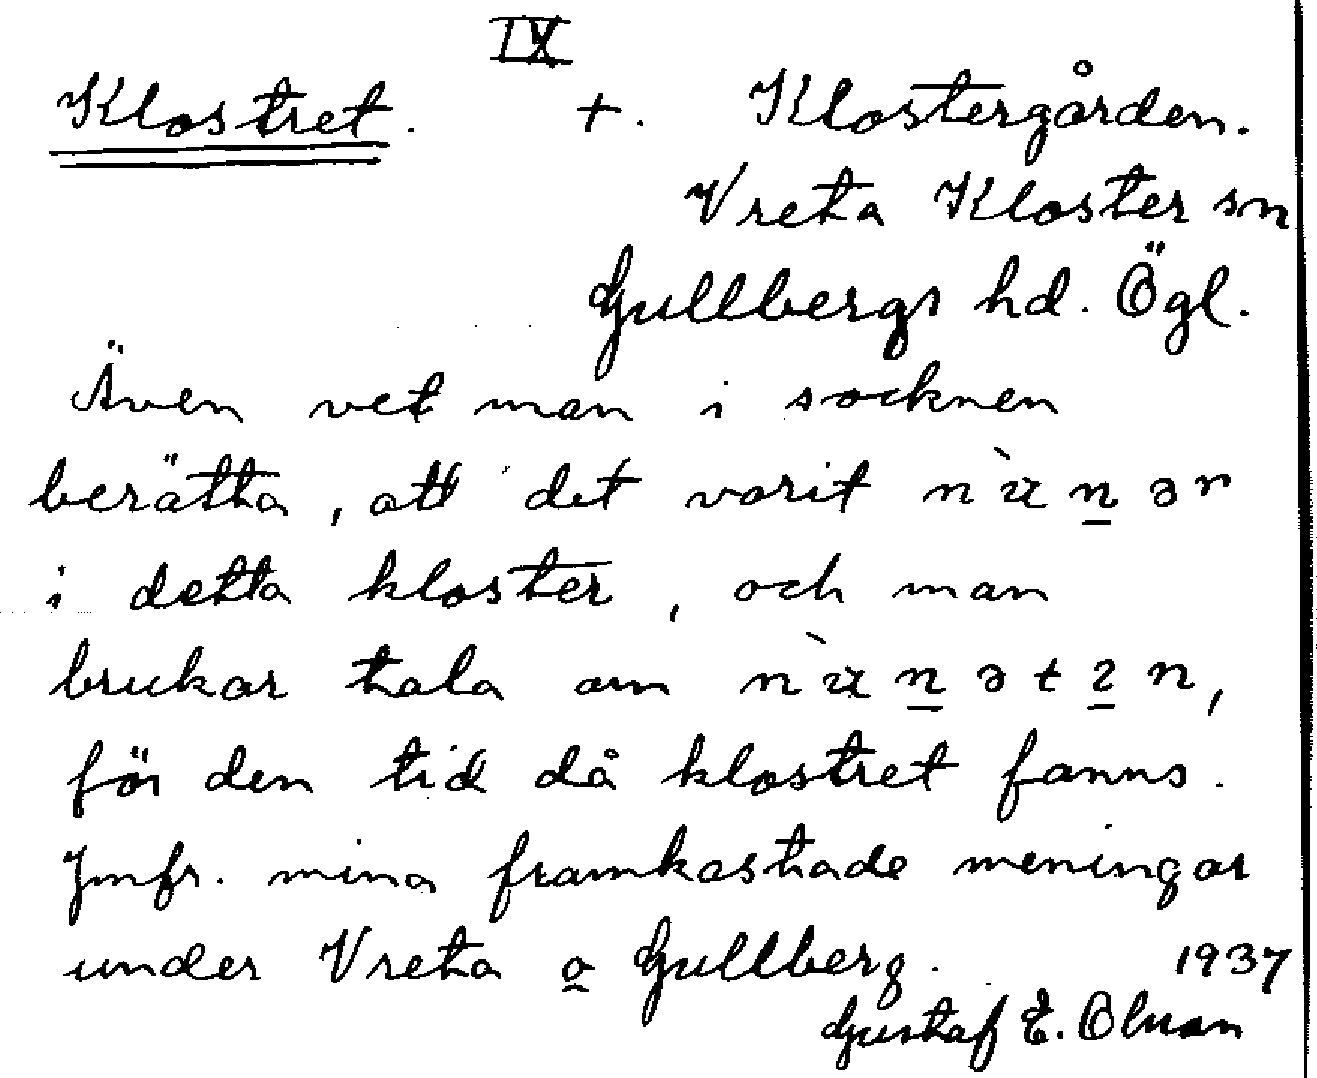 IX
Klostret. +. Klostergården.
Vreta Kloster sn
Gullbergs hd. Ögl.
Även vet man i socknen
berätta, att det varit
i detta kloster, och man
brukar tala om
för den tid då klostret fanns.
Jmfr. mina framkastade meningar
under Vreta o Gullberg. 1937
Gustaf E. Olsson